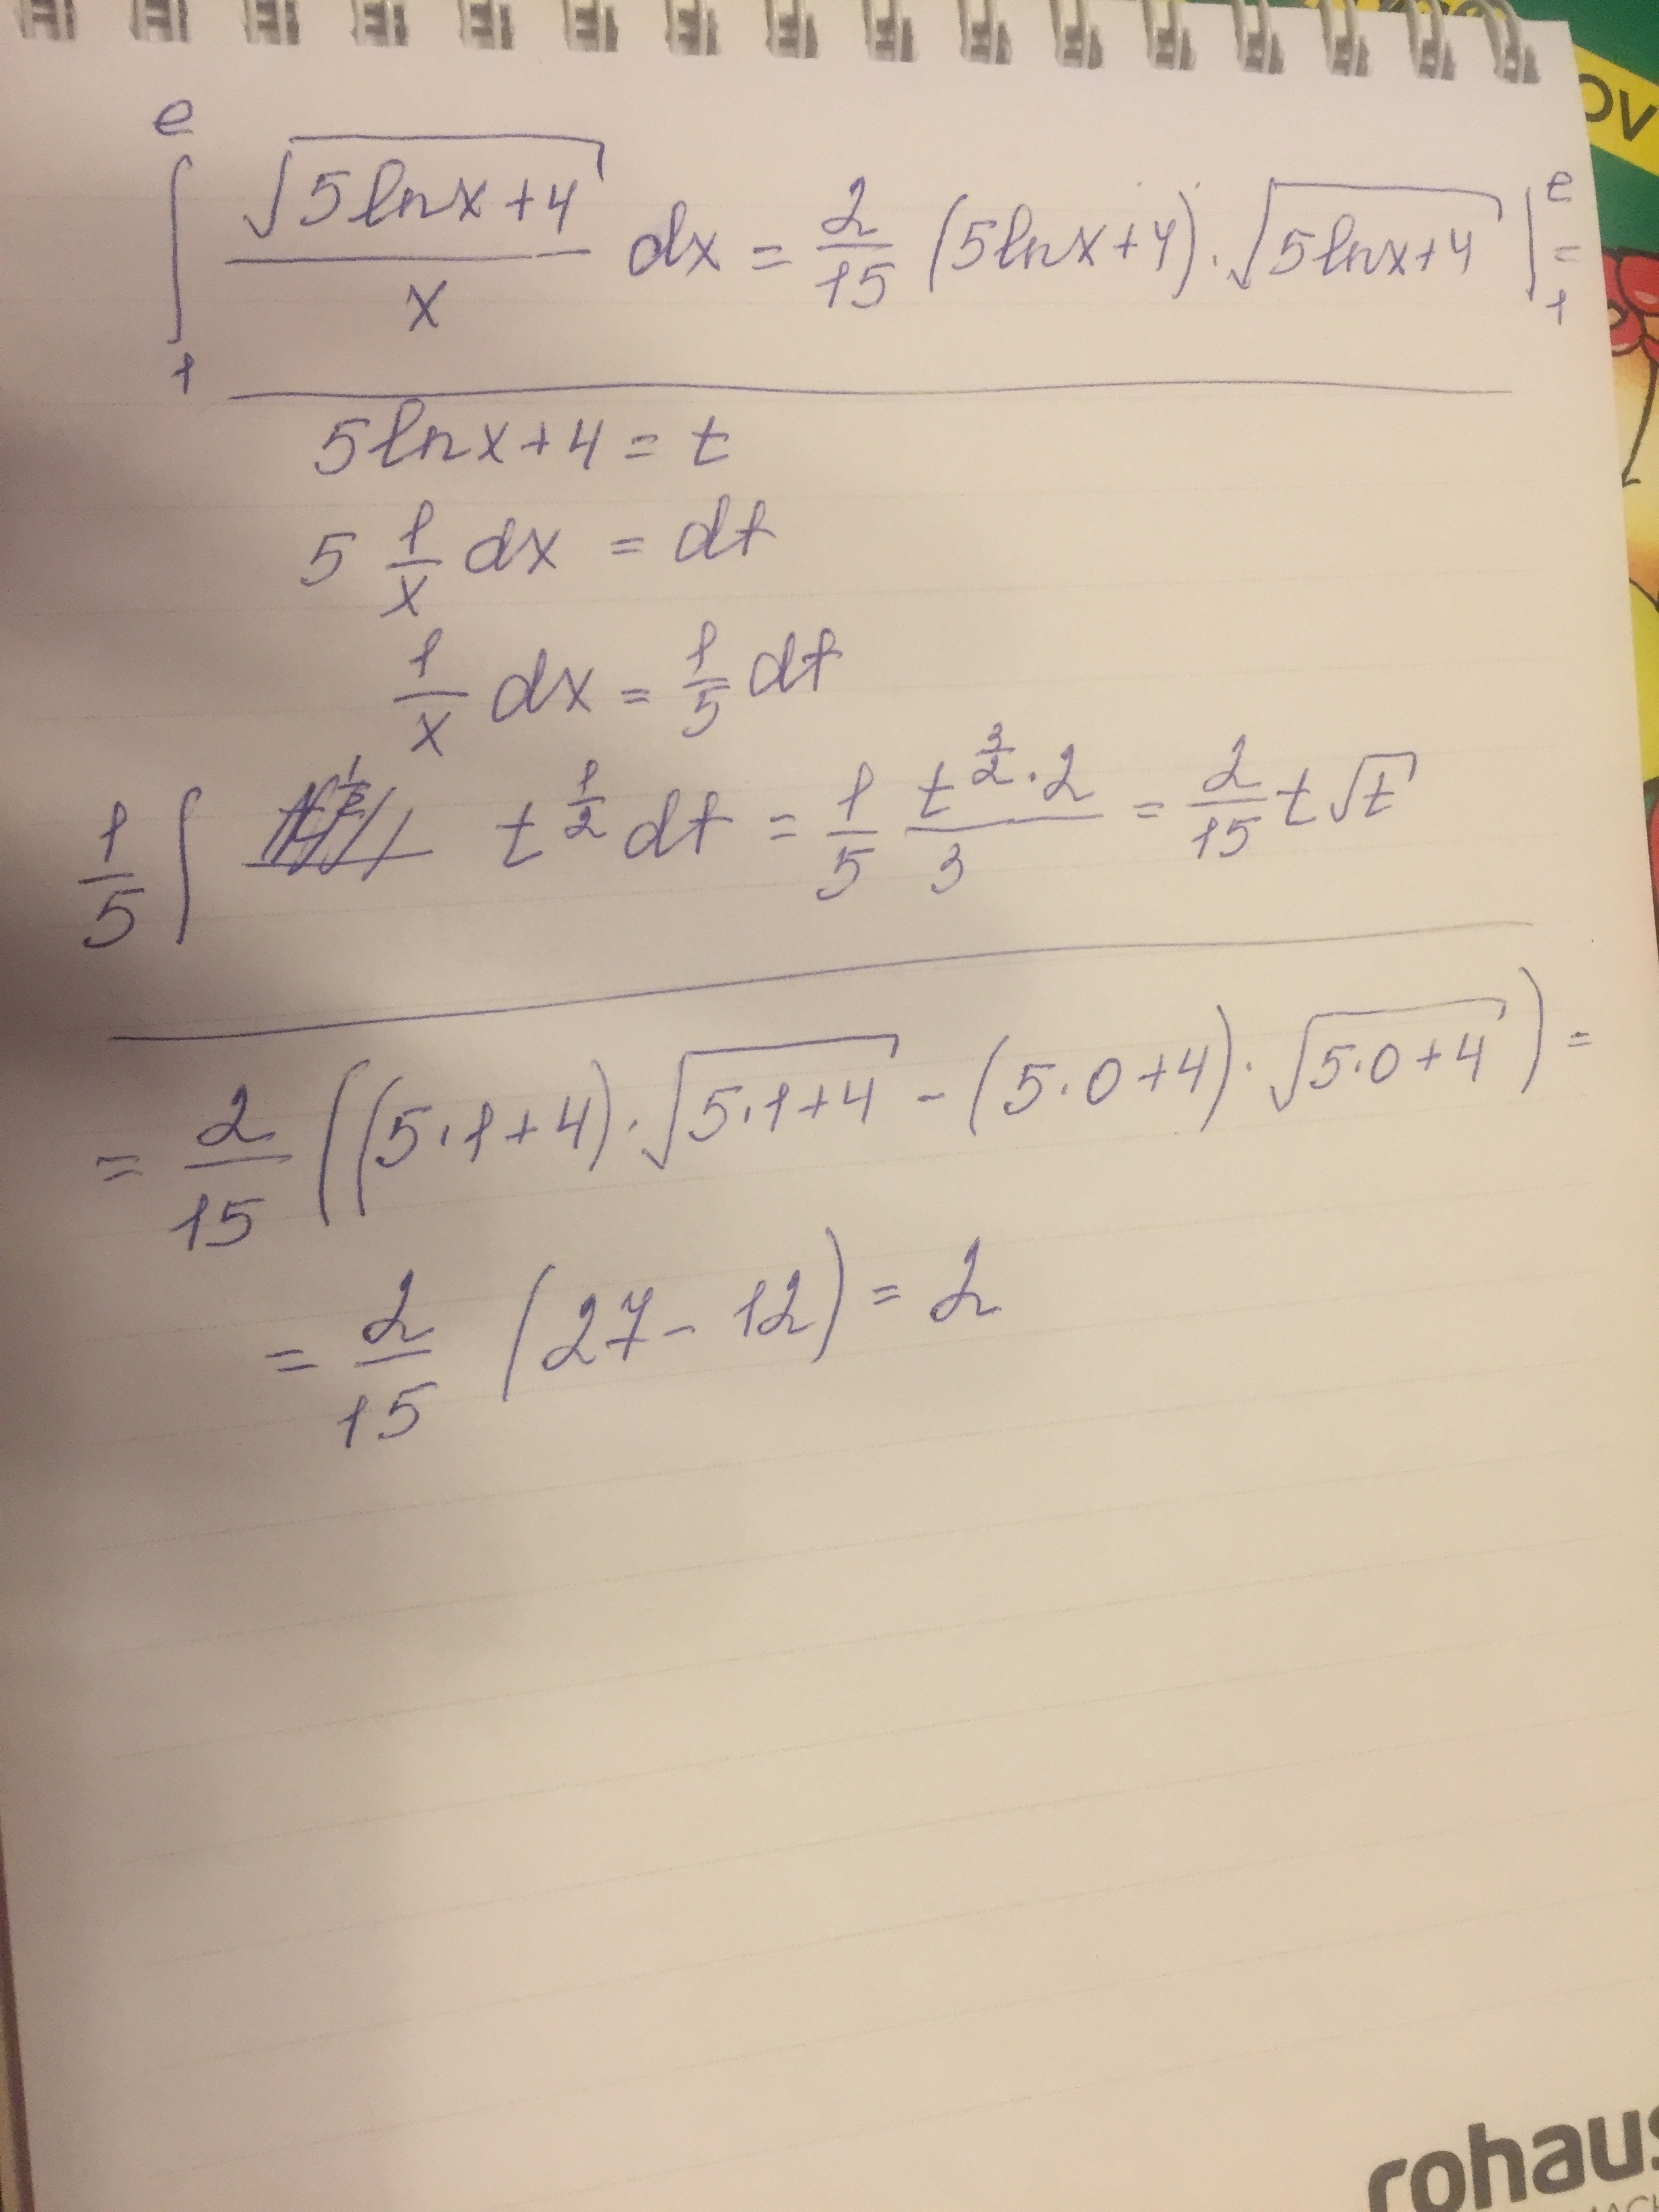 ∫₁ᵉ √(5lnx+4)/x dx = 2/15 (5lnx+4)·√(5lnx+4) |₁ᵉ =
5lnx+4 = t
5 1/x dx = dt
1/x dx = 1/5 dt
1/5 ∫ t^(1/2) dt = 1/5 (t^(3/2)·2)/3 = 2/15 t√t
= 2/15 ((5·1+4)·√(5·1+4) - (5·0+4)·√(5·0+4)) =
= 2/15 (27-12) = 2
OV
rohaus